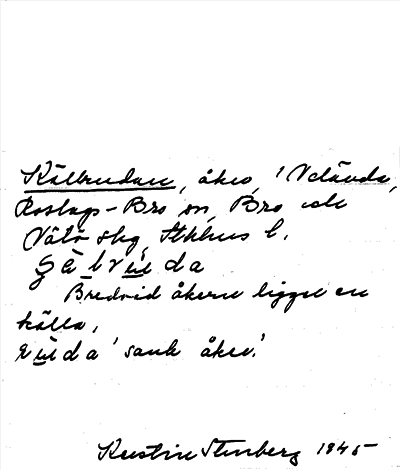 Källrudan, åker, i Veläuda,
Roslags-Bro sn, Bro och
Vätö skg, Sthlms l.
Bredvid åkern ligger en
källa,
'sank åker'.
Kerstin Stenberg 1945